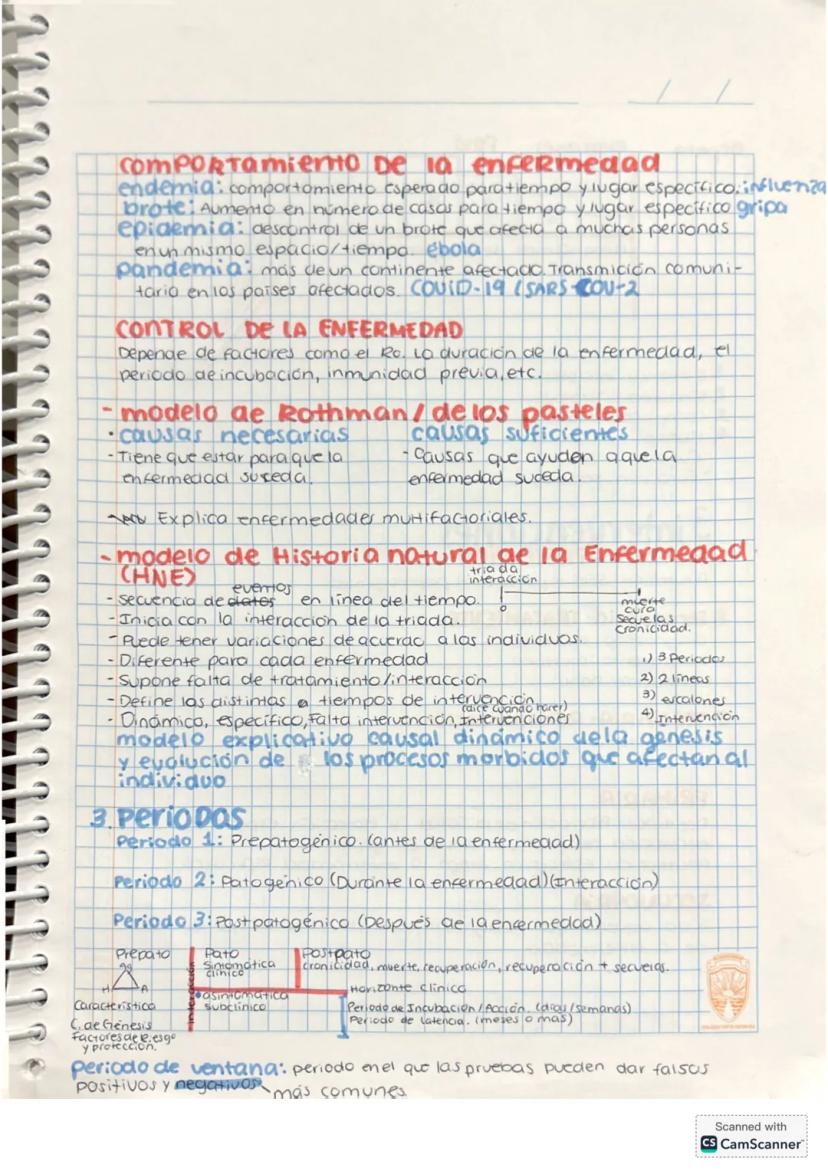 comportamiento de la enfermedad
endemia: comportamiento esperado para tiempo y lugar específico. influenza
brote: Aumento en número de casos para tiempo y lugar específico gripa
epidemia: descontrol de un brote que afecta a muchas personas
en un mismo espacio/tiempo. ébola
pandemia: más de un continente afectado. Transmición comuni-
taria en los países afectados. COVID-19 / SARS-COV-2
CONTROL DE LA ENFERMEDAD
Depende de factores como el Ro. La duración de la enfermedad, el
periodo de incubación, inmunidad previa, etc.
- modelo de Rothman / de los pasteles
· causas necesarias causas suficientes
- Tiene que estar para que la - Causas que ayuden a que la
enfermedad suceda. enfermedad suceda.
Explica enfermedades multifactoriales.
- modelo de Historia natural de la Enfermedad
(HNE)
triada
interacción
eventos
- Secuencia de datos en línea del tiempo.
muerte
cura
secuelas
cronicidad.
- Inicia con la interacción de la triada.
- Puede tener variaciones de acuerdo a los individuos.
- Diferente para cada enfermedad 1.) 3 Periodos
- Supone falta de tratamiento/interacción 2) 2 líneas
- Define los distintos tiempos de intervención 3) escalones
(dice cuando hacer)
- Dinámico, específico, Falta intervención, Intervenciones 4) Intervención
modelo explicativo causal dinámico de la genesis
y evolución de los procesos morbidos que afectan al
individuo
3. Periodos
Periodo 1: Prepatogénico. (antes de la enfermedad)
Periodo 2: Patogénico (Durante la enfermedad) (Interacción)
Periodo 3: Postpatogénico (Después de la enfermedad)
Prepato Pato Postpato
sintomática cronicidad, muerte, recuperación, recuperación + secuelas.
clínico
H A
interacción
Horizonte clínico
asintomática
subclínico
Periodo de Incubación / Acción. (días/semanas)
Periodo de latencia. (meses o más)
Característica
C. de Génesis
Factores de riesgo
y protección.
periodo de ventana: periodo en el que las pruebas pueden dar falsos
positivos y negativos más comunes
Scanned with
CS CamScanner